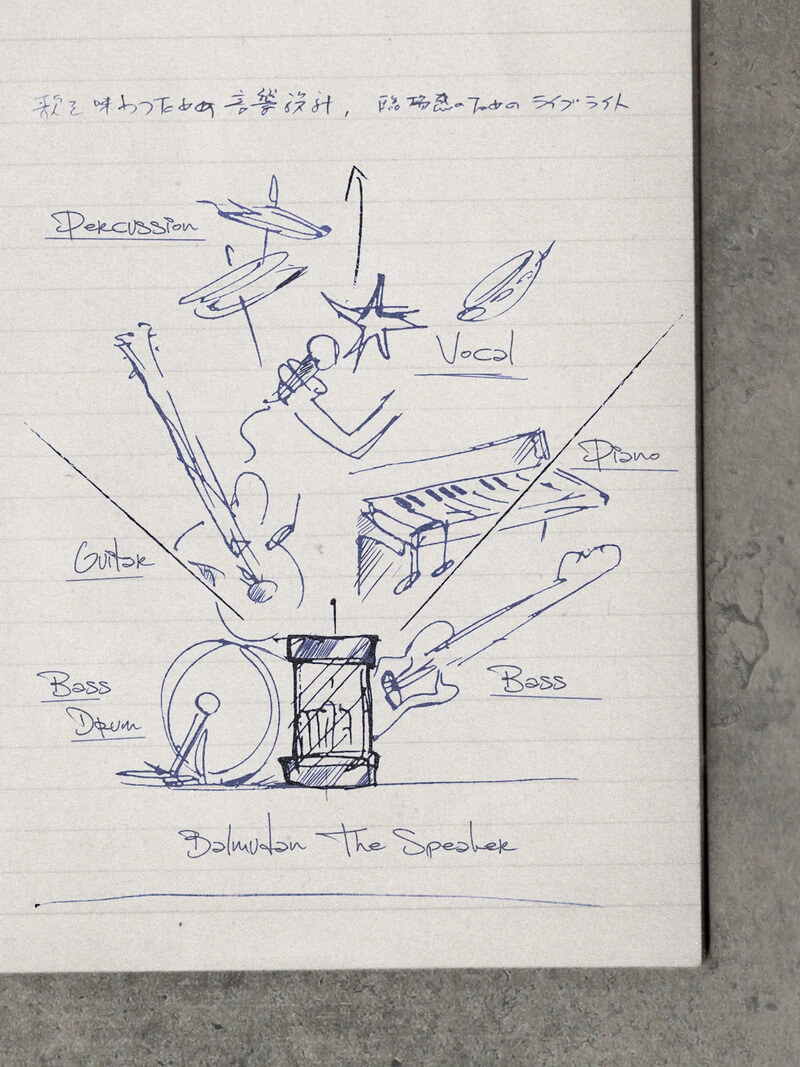 歌を味わうための音響設計, 臨場感のためのライブライト
Percussion
Vocal
Piano
Guitar
Bass
Bass
Drum
Balmudan The Speaker